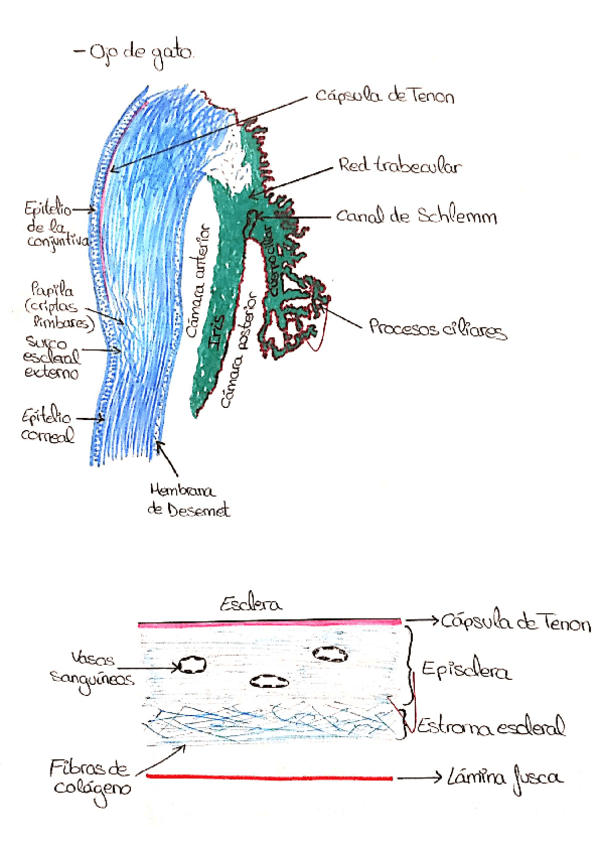 - Ojo de gato.
Cápsula de Tenon
Red trabecular
Canal de Schlemm
Epitelio
de la
conjuntiva
Cámara anterior
Iris
Cámara posterior
cuerpo ciliar
Papila
(criptas
limbares)
Surco
escleral
externo
Procesos ciliares
Epitelio
corneal
Membrana
de Desemet
Esclera
Cápsula de Tenon
Vasos
sanguíneos
Episclera
Estroma escleral
Fibras de
colágeno
Lámina fusca